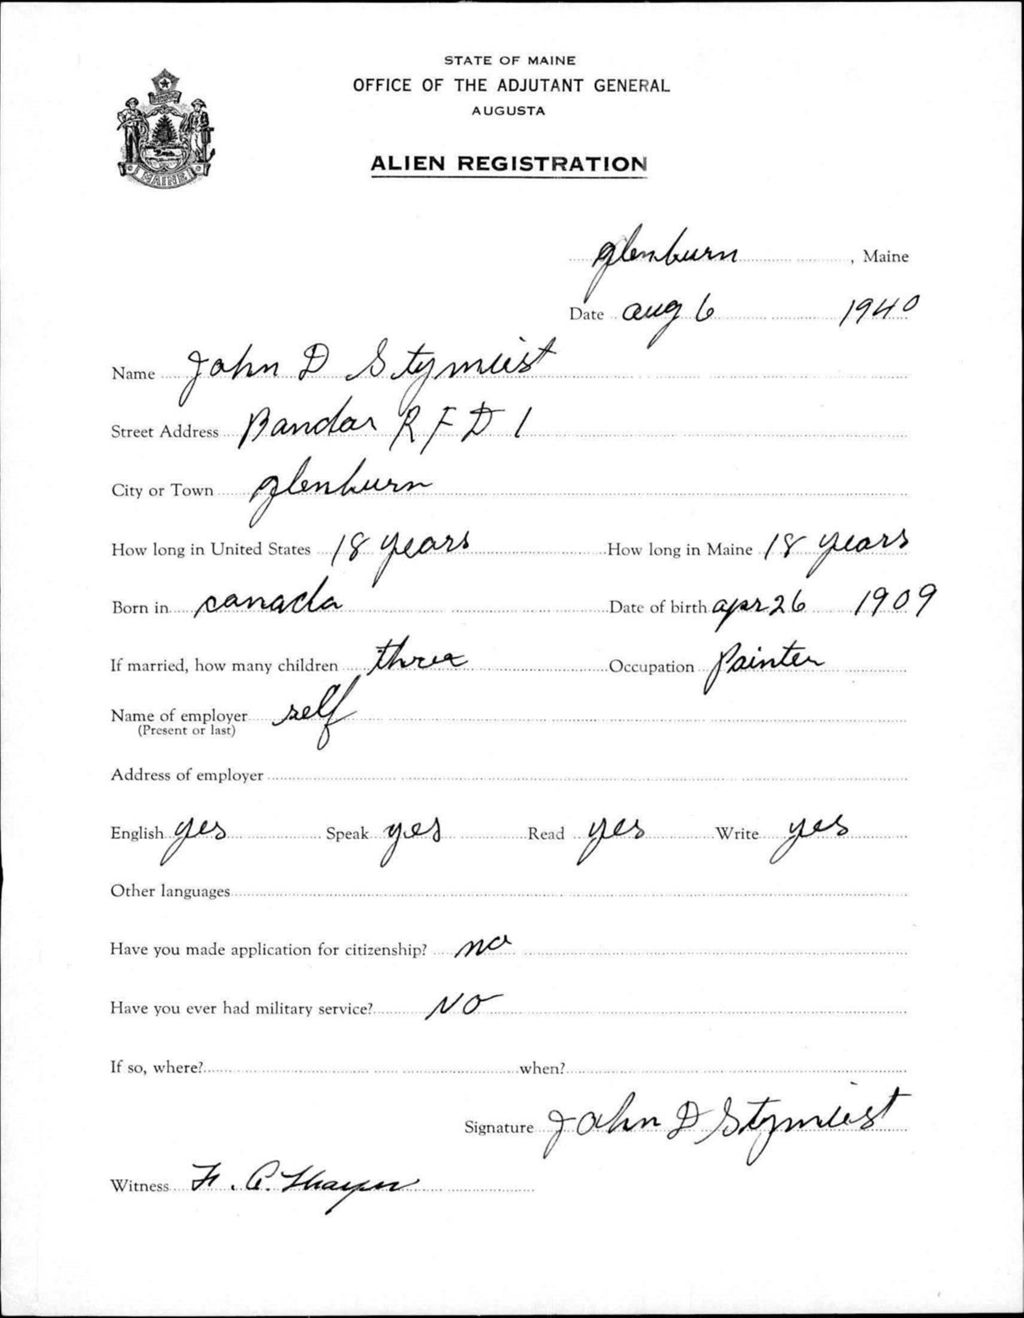 STATE OF MAINE
OFFICE OF THE ADJUTANT GENERAL
AUGUSTA
ALIEN REGISTRATION
MAINE
glenburn, Maine
Date aug 6 1940
Name John D Stymiest
Street Address R F D 1
City or Town glenburn
How long in United States 18 years How long in Maine 18 years
Born in canada Date of birth apr 26 1909
If married, how many children three Occupation Painter
Name of employer self
(Present or last)
Address of employer
English yes Speak yes Read yes Write yes
Other languages
Have you made application for citizenship? no
Have you ever had military service? NO
If so, where? when?
Signature John D Stymiest
Witness Thayer